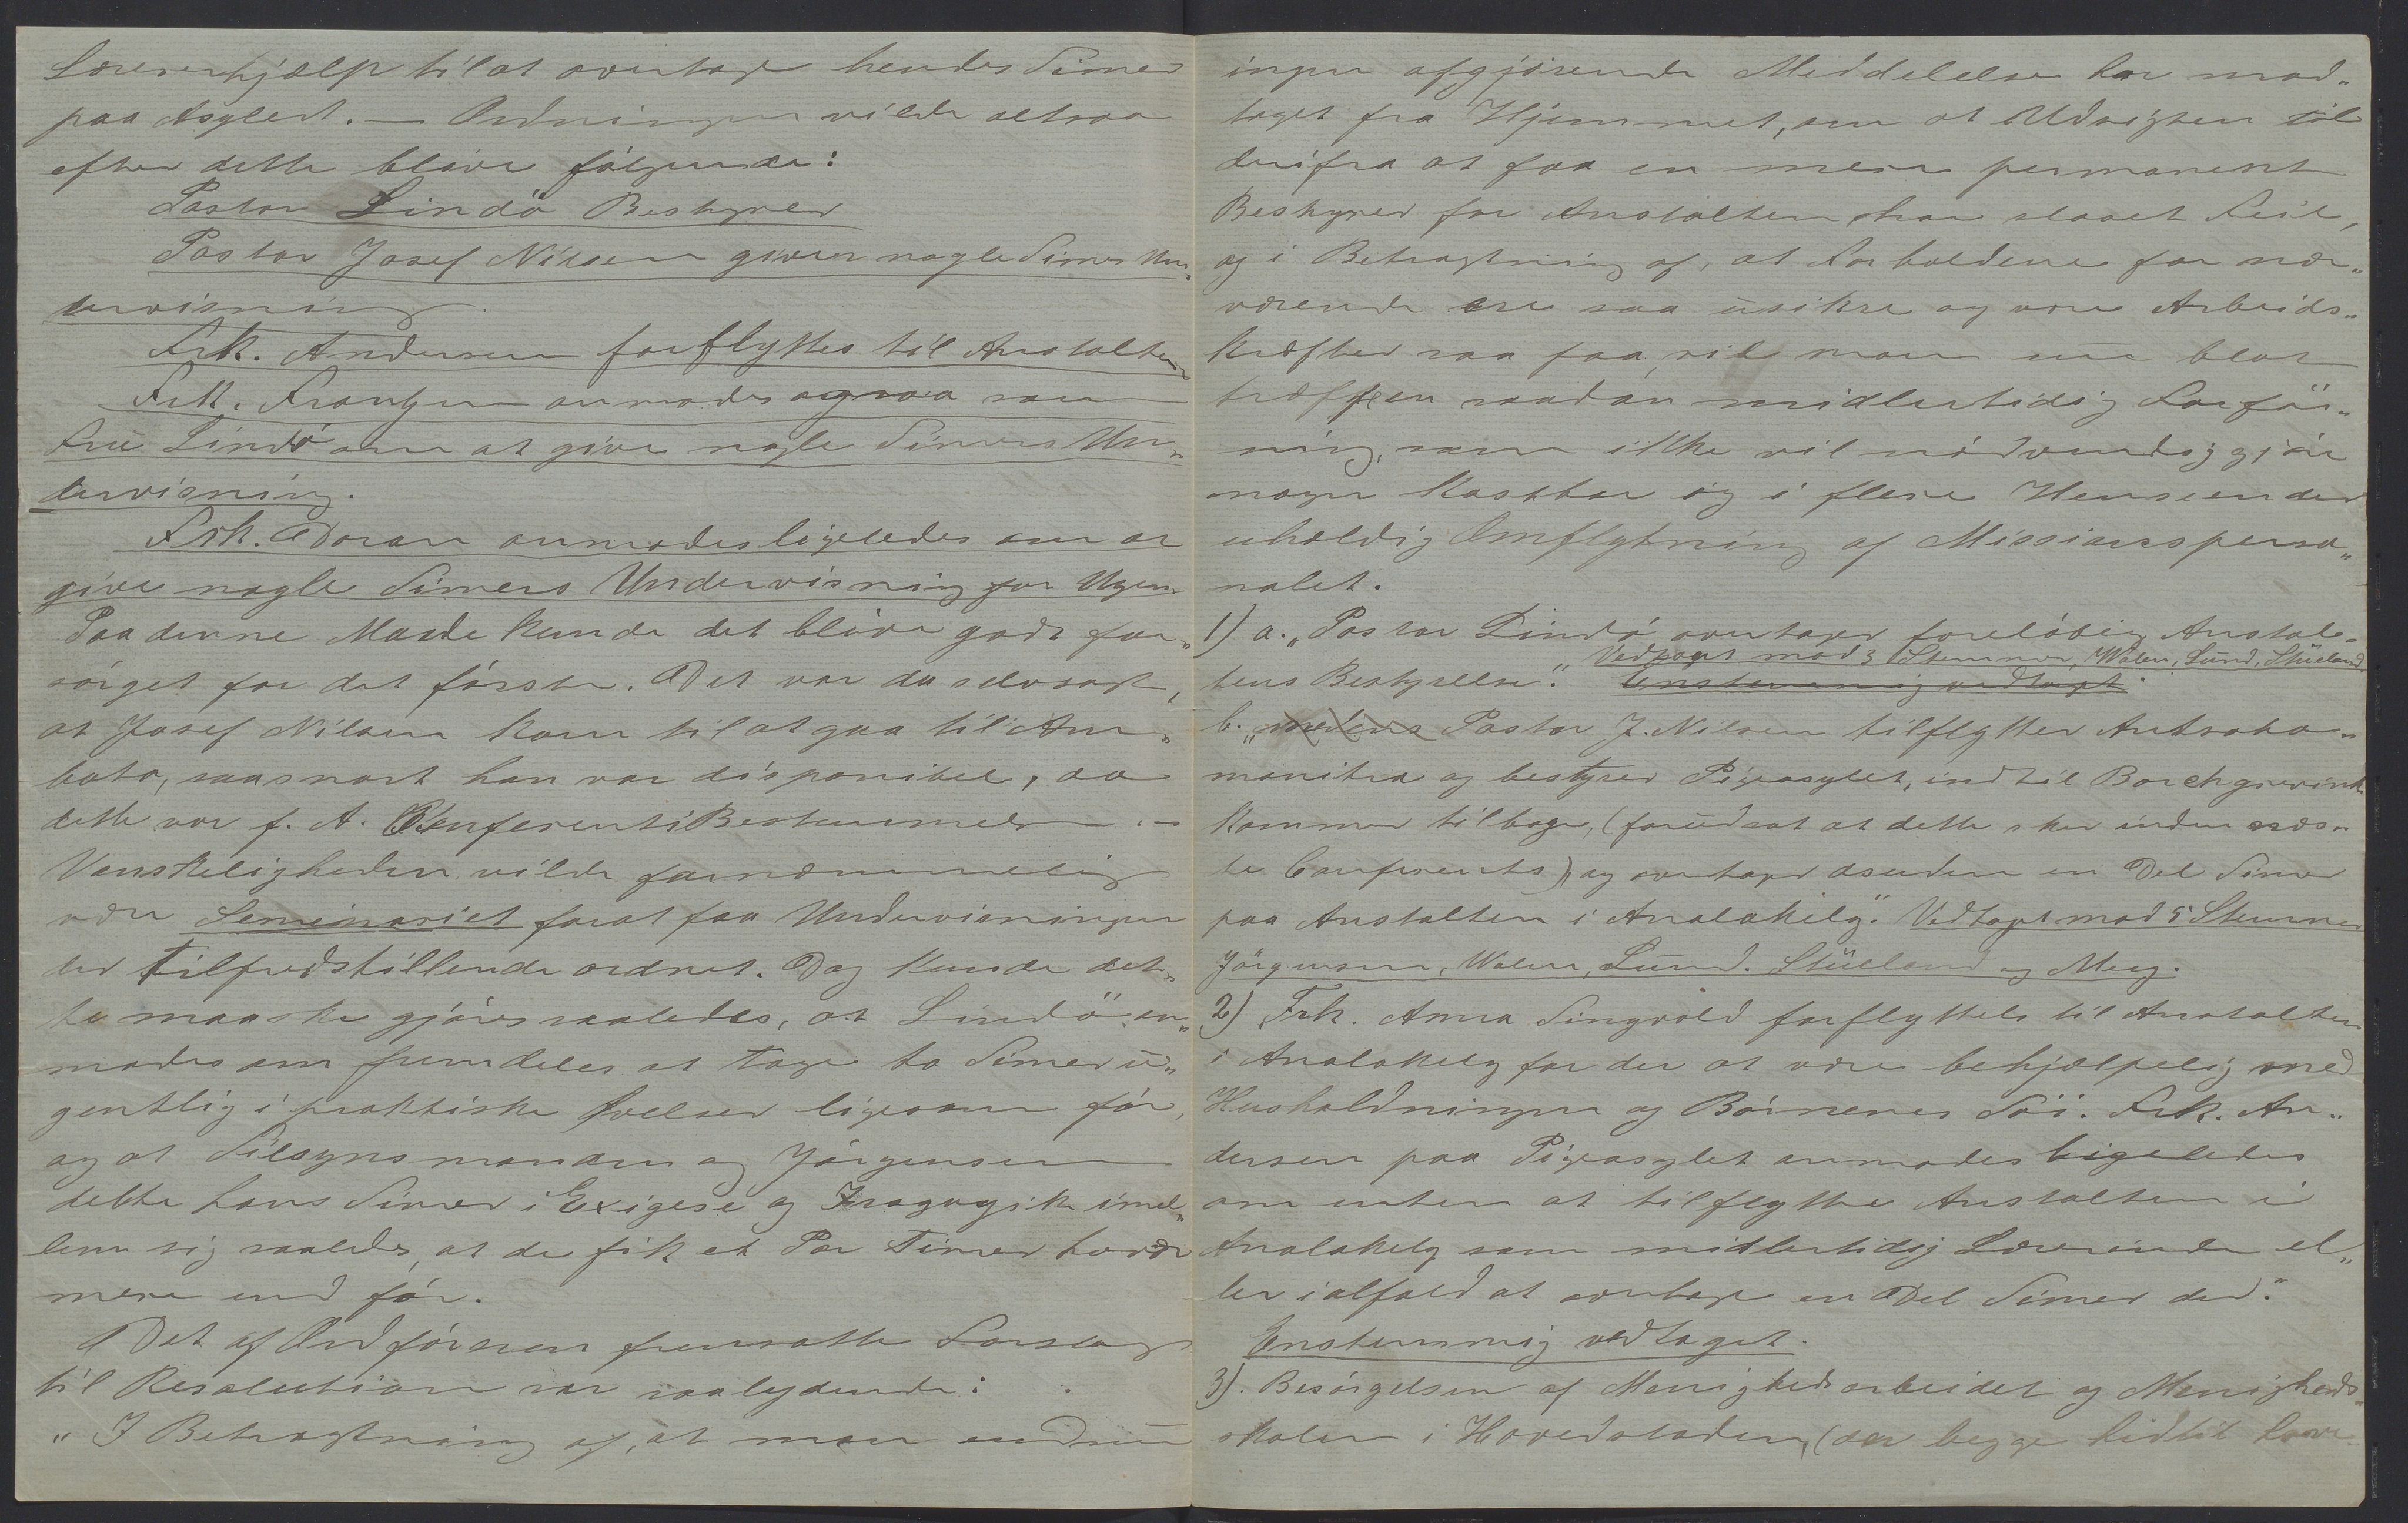 Lærerhjælp til at overtage hendes Timer
paa Asylet. — Ordningen vilde altsaa
efter dette blive følgende:
Pastor Lindø Bestyrer
Pastor Josef Nilsen giver nogle Timers Un„
dervisning.
Frk. Andersen forflyttes til Anstalten
Frk. Frantzen anmodes ogsaa som
Fru Lindø om at give nogle Timers Un„
dervisning.
Frk. Doran anmodes ligeledes om at
give nogle Timers Undervisning for Ugen.
Paa denne Maade kunde det blive godt for„
sørget for det første. Det var da selvsagt,
at Josef Nilsen kom til at gaa til Am„
bato, saasnart han var disponibel, da
dette var f. A. Conferents Bestemmelse. —
Vanskeligheden vilde fornemmelig
være Seminariet forat faa Undervisningen
der tilfredsstillende ordnet. Dog kunde det„
te maaske gjøres saaledes, at Lindø an„
modes om fremdeles at tage to Timer u„
gentlig i praktiske Øvelser ligesom før,
og at Tilsynsmanden og Jørgensen
delte hans Timer i Exigese og Isagogik imel„
lem sig saaledes, at de fik et Par Timer hver
mere end før.
Det af Ordføreren fremsatte Forslag
til Resolution var saalydende:
„I Betragtning af, at man endnu
ingen afgjørende Meddelelse har mod„
taget fra Hjemmet, om at Udsigten til
derifra at faa en mere permanent
Bestyrer for Anstalten har slaaet Feil,
og i Betragtning af, at Forholdene for nær„
værende ere saa usikre og vore Arbeids„
kræfter saa faa, vil man nu blot
træffe en saadan midlertidig Forføi„
ning, som ikke vil nødvendiggjøre
nogen kostbar og i flere Henseender
uheldig Omflytning af Missionsperso„
nalet.
1) a. „Pastor Lindø overtager foreløbig Anstal„
Vedtaget mod 3 Stemmer, Walen, Lund, Stüeland
tens Bestyrelse." Enstemmig vedtaget.
b. „medens Pastor J. Nilsen tilflytter Antsaha„
manitra og bestyrer Pigeasylet, indtil Borchgrevink
kommer tilbage, (forudsat at dette sker inden næs„
te Conferents) og overtager desuden en Del Timer
paa Anstalten i Analakely." Vedtaget mod 5 Stemmer
Jørgensen, Walen, Lund. Stüeland og Meeg.
2) Frk. Anna Tingvold forflyttes til Anstalten
i Analakely for der at være behjælpelig med
Husholdningen og Børnenes Tøi. Frk. An„
dersen paa Pigeasylet anmodes ligeledes
om enten at tilflytte Anstalten i
Analakely som midlertidig Lærerinde el„
ler ialfald at overtage en Del Timer der."
Enstemmig vedtaget.
3). Besørgelsen af Menighedsarbeidet og Menigheds„
skolen i Hovedstaden, (der begge hidtil have